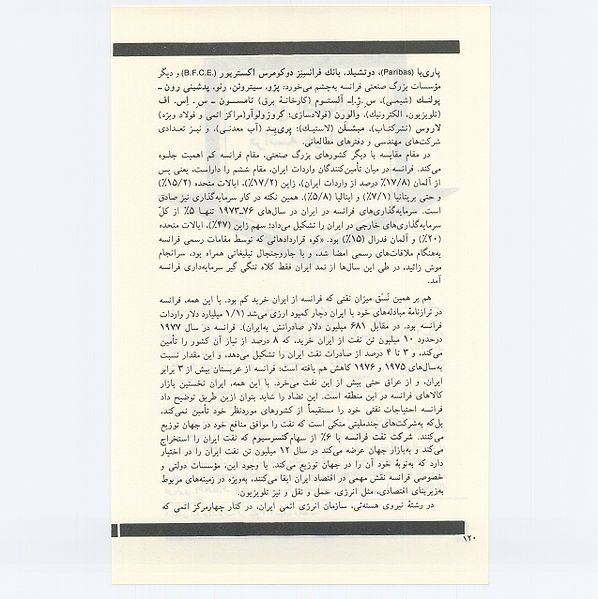 پاری‌با (Paribas)، دوتشیلد، بانك فرانسینز دوکومرس اکستریور (B.F.C.E.) و دیگر
مؤسسات بزرگ صنعتی فرانسه به‌چشم می‌خورد: پژو، سیتروئن، رنو، پدشینی رون ـ
پولنـك (شیمی)، س.ژ.اِ. آلستوم (کارخانهٔ برق) تامسـون ـ س. اِس. اف
(تلویزیون، الکترونیك)، والورن (فولادسازی): کروزولوآر (مراکز اتمی و فولاد ویژه)
لاروس (نشرکتاب)، میشلن (لاستیك)؛ پری‌یـد (آب معدنـی)، و نیـز تعـدادی
شرکت‌های مهندسی و دفترهای مطالعاتی.
در مقام مقایسه با دیگر کشورهای بزرگ صنعتی، مقام فرانسه کم اهمیت جلوه
می‌کند. فرانسه در میان تأمین‌کنندگان واردات ایران، مقام ششم را داراست، یعنی پس
از آلمان (۱۷/۸٪ درصد از واردات ایران)، ژاپن (۱۷/۲٪)، ایالات متحده (۱۵/۲٪)
و حتی بریتانیا (۷/۱٪) و ایتالیا (۵/۸٪). همین نکته در کار سرمایه‌گذاری نیز صادق
است. سرمایه‌گذاری‌های فرانسه در ایران در سال‌های ۷۶ـ۱۹۷۳ تنهـا ۵٪ از کلّ
سرمایه‌گذاری‌های خارجی در ایران را تشکیل می‌داد؛ سهم ژاپن (۴۷٪)، ایالات متحده
(۲۰٪) و آلمان فدرال (۱۵٪) بود. «کوه قراردادهائی که توسط مقامات رسمی فرانسه
به‌هنگام ملاقات‌های رسمی امضا شد، و با جاروجنجال تبلیغاتی همراه بود، سرانجام
موش زائید، در طی این سال‌ها از نمد ایران فقط کلاه تنگی گیر سرمایه‌داری فرانسه
آمد.
هم بر همین نَسَق میزان نفتی که فرانسه از ایران خرید کم بود. با این همه، فرانسه
در ترازنامهٔ مبادله‌های خود با ایران دچار کمبود ارزی می‌شد (۱/۱ میلیارد دلار واردات
فرانسه بود. در مقابل ۶۸۱ میلیون دلار صادراتش به‌ایران). فرانسه در سال ۱۹۷۷
درحدود ۱۰ میلیون تن نفت از ایران خرید، که ۸ درصد از نیاز آن کشور را تأمین
می‌کند، و ۳ تا ۴ درصد از صادرات نفت ایران را تشکیل می‌دهد، و این مقدار نسبت
به‌سال‌های ۱۹۷۵ و ۱۹۷۶ کاهش هم یافته است؛ فرانسه از عربستان بیش از ۳ برابر
ایران، و از عراق حتی بیش از این نفت می‌خرد. با این همه، ایران نخستین بازار
کالاهای فرانسه در این منطقه است. این تضاد را شاید بتوان ازین طریق توضیح داد
فرانسه احتیاجات نفتی خود را مستقیماً از کشورهای موردنظر خود تأمین نمی‌کند،
بل‌که به‌شرکت‌های چندملیتی متکی است که نفت را موافق منافع خود در جهان توزیع
می‌کنند. شرکت نفت فرانسه با ۶٪ از سهام کنسرسیوم که نفت ایران را استخراج
می‌کند و به‌بازار جهان عرضه می‌کند در سال ۱۲ میلیون تن نفت ایران را در اختیار
دارد که به‌نوبهٔ خود آن را در جهان توزیع می‌کند. با وجود این، مؤسسات دولتی و
خصوصی فرانسه نقش مهمی در اقتصاد ایران ایفا می‌کنند، به‌ویژه در زمینه‌های مربوط
به‌زیربنای اقتصادی، مثل انرژی، حمل و نقل و نیز تلویزیون.
در رشتهٔ نیروی هسته‌ئی، سازمان انرژی اتمی ایران، در کنار چهارمرکز اتمی که
۱۲۰